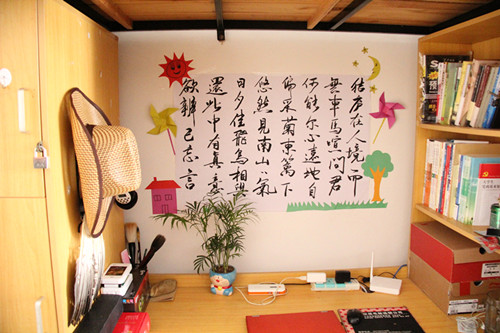 结庐在人境而
無車馬喧问君
何能尔心遠地自
偏采菊東篱下
悠然見南山々氣
日夕佳飛鳥相與
還此中有真意
欲辨已忘言